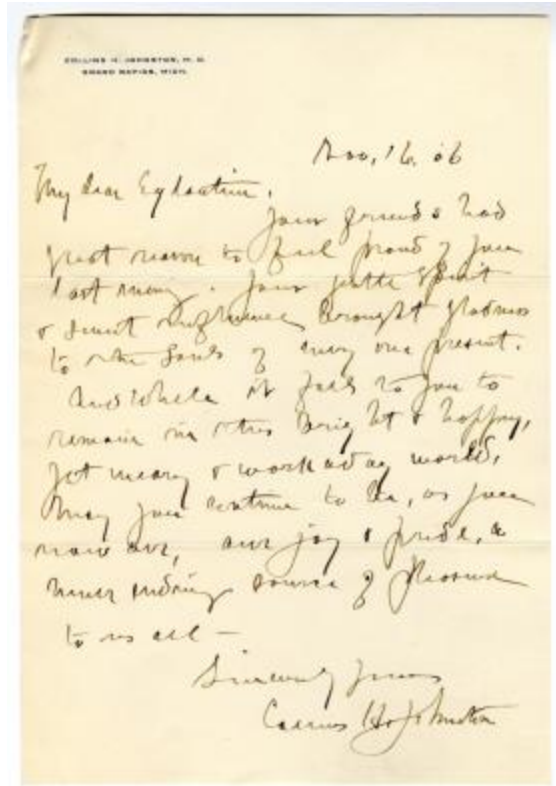 COLLINS H. JOHNSTON, M. D.
GRAND RAPIDS, MICH.
Nov, 16. 06
My dear Eglantine,
Your friends had
great reason to feel proud of you
last evening. Your gentle spirit
& sweet influence brought gladness
to the souls of every one present.
And while it falls to you to
remain in this bright & happy,
yet weary & work aday world,
may you continue to be, as you
now are, our joy & pride, a
never ending source of pleasure
to us all —
Sincerely yours
Collins H. Johnston